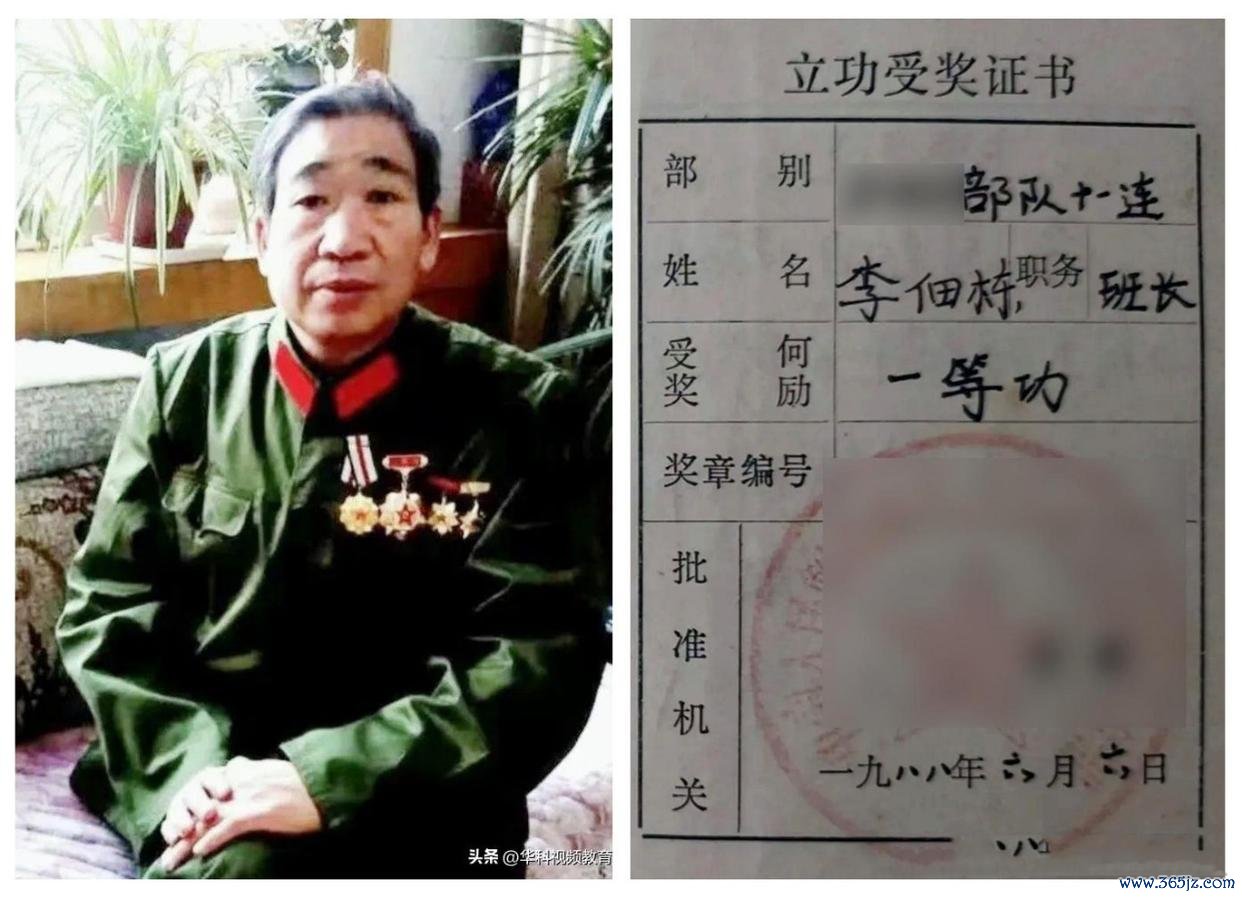 立功受奖证书
部别 部队十一连
姓名 李佃栋 职务 班长
受何奖励 一等功
奖章编号
批准机关
一九八八年六月六日
头条 @华科视频教育
www.365jz.com